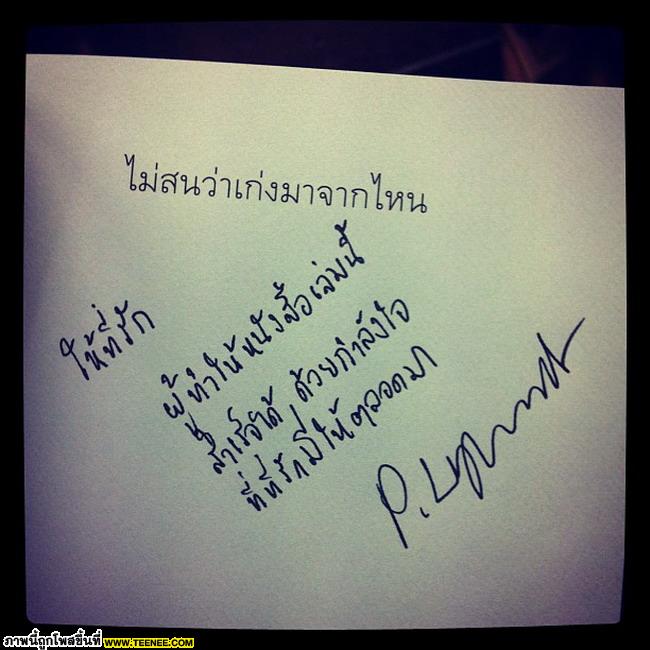 ไม่สนว่าเก่งมาจากไหน
ให้ที่รัก
ผู้ทำให้หนังสือเล่มนี้
สำเร็จได้ ด้วยกำลังใจ
ที่ที่รักมีให้ตลอดมา
P.
ภาพนี้ถูกโพสขึ้นที่ WWW.TEENEE.COM